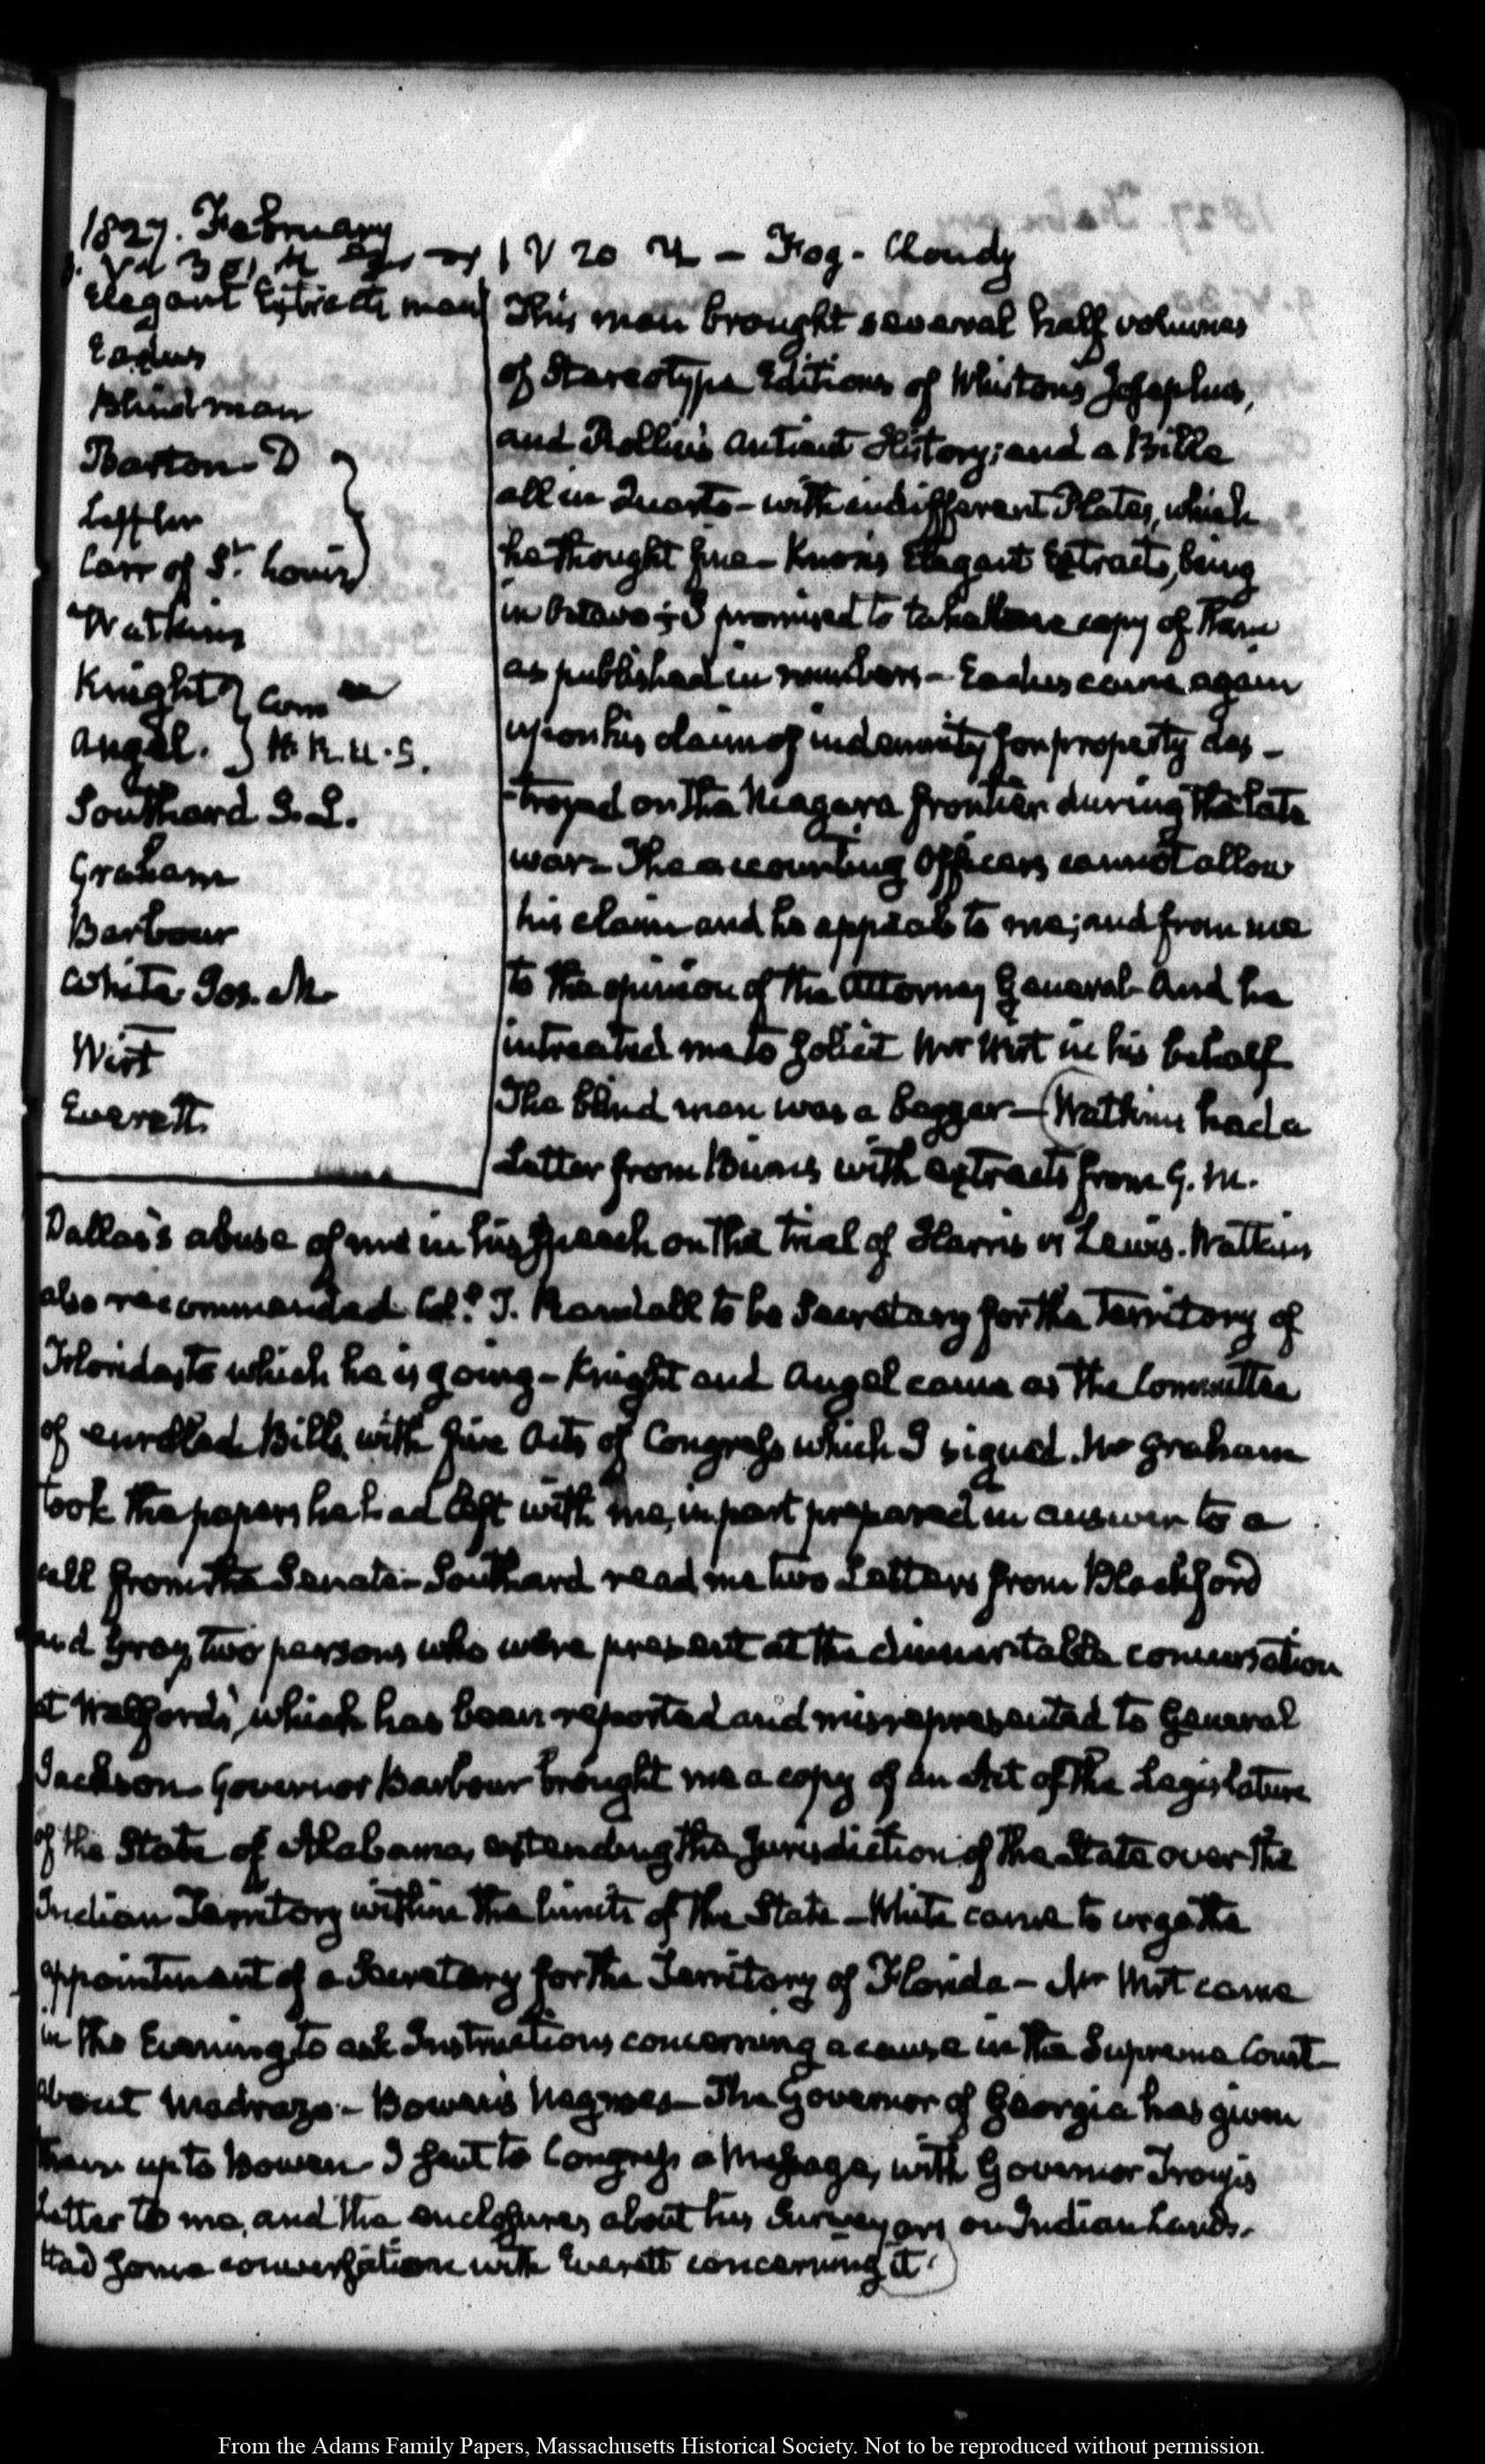 1827. February
V 20 — Fog - Cloudy
Elegant Extracts man
Eadus
Blind man
Barton. D
Leffler
Carr of St. Louis
Watkins
Knight } Com
Angel. } H. R. U. S.
Southard S. L.
Graham
Barbour
White Jos. M.
Wirt
Everett.
This man brought several half volumes
of Stereotype Editions of Whiston's Josephus,
and Rollin's Antient History; and a Bible
all in Quarto - with indifferent Plates, which
he thought fine - Knox's Elegant Extracts, being
in Octavo; I promised to take one copy of them
as published in numbers - Eadus came again
upon his claim of indemnity for property des-
-troyed on the Niagara frontier during the late
war - The accounting Officers cannot allow
his claim and he appeals to me; and from me
to the opinion of the Attorney General - And he
intreated me to solicit Mr Wirt in his behalf
The blind man was a beggar - (Watkins had a
Letter from Binns with extracts from G. M.
Dallas's abuse of me in his speech on the trial of Harris vs Lewis. Watkins
also recommended Coll. T. Randall to be Secretary for the Territory of
Florida, to which he is going - Knight and Angel came as the Committee
of enrolled Bills, with five Acts of Congress which I signed. Mr Graham
took the papers he had left with me, in part prepared in answer to a
call from the Senate - Southard read me two Letters from Blackford
and Gray, two persons who were present at the dinner table conversation
at Welford's, which has been reported and misrepresented to General
Jackson. Governor Barbour brought me a copy of an Act of the Legislature
of the State of Alabama, extending the Jurisdiction of the State over the
Indian Territory within the limits of the State - White came to urge the
appointment of a Secretary for the Territory of Florida - Mr Wirt came
in the Evening, to ask Instructions concerning a cause in the Supreme Court -
about Madrazo - Bowen's Negroes - The Governor of Georgia has given
them up to Bowen - I sent to Congress a Message, with Governor Troup's
Letter to me, and the enclosures about his Surveyors on Indian Lands.
Had some conversation with Everett concerning it.)
From the Adams Family Papers, Massachusetts Historical Society. Not to be reproduced without permission.